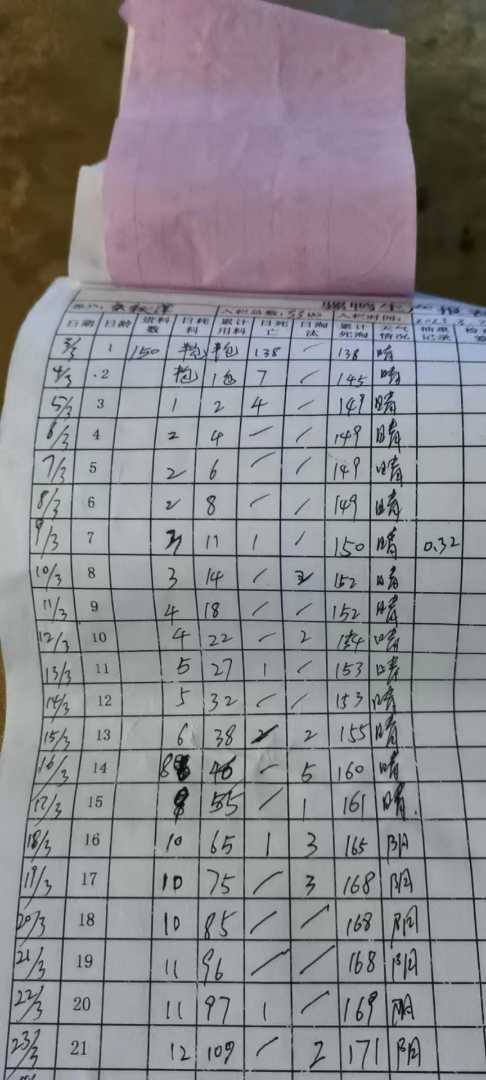 入栏总数: 5500 入栏时间:
日期 日龄 进料数 日耗料 累计用料 日死亡 日淘汰 累计死淘 天气情况 抽重记录
3/3 1 150 半包 半包 138 / 138 晴
4/3 2 半包 1包 7 / 145 晴
5/3 3 1 2 4 / 149 晴
6/3 4 2 4 / / 149 晴
7/3 5 2 6 / / 149 晴
8/3 6 2 8 / / 149 晴
9/3 7 3 11 1 / 150 晴 0.32
10/3 8 3 14 / 2 152 晴
11/3 9 4 18 / / 152 晴
12/3 10 4 22 / 2 154 晴
13/3 11 5 27 1 / 153 晴
14/3 12 5 32 / / 153 晴
15/3 13 6 38 2 155 晴
16/3 14 8 46 / 5 160 晴
17/3 15 9 55 / 1 161 晴
18/3 16 10 65 1 3 165 阴
19/3 17 10 75 / 3 168 阴
20/3 18 10 85 / / 168 阴
21/3 19 11 96 / / 168 阴
22/3 20 11 97 1 / 169 阴
23/3 21 12 109 / 2 171 阴